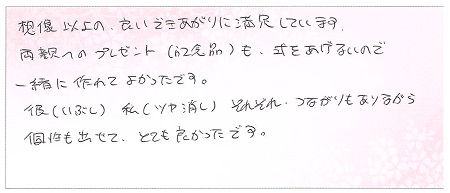 想像以上の、良いできあがりに満足しています。
両親へのプレゼント（記念品）も、式をあげないので
一緒に作れてよかったです。
彼（いぶし）私（ツヤ消し）それぞれ、つながりもありながら
個性も出せて、とても良かったです。